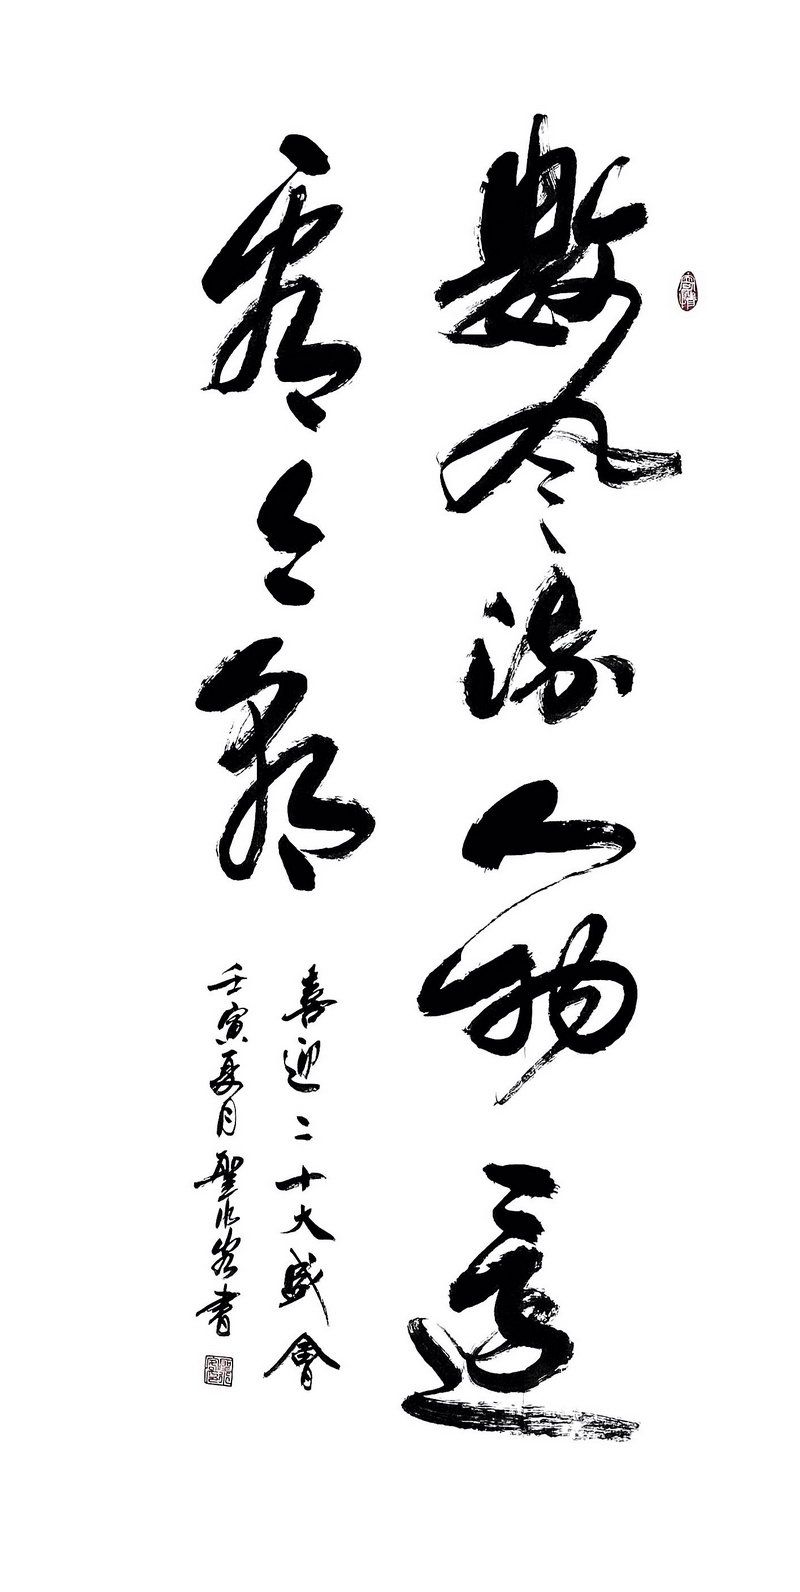 數風流人物還
看今朝
喜迎二十大盛會
壬寅夏月聖書